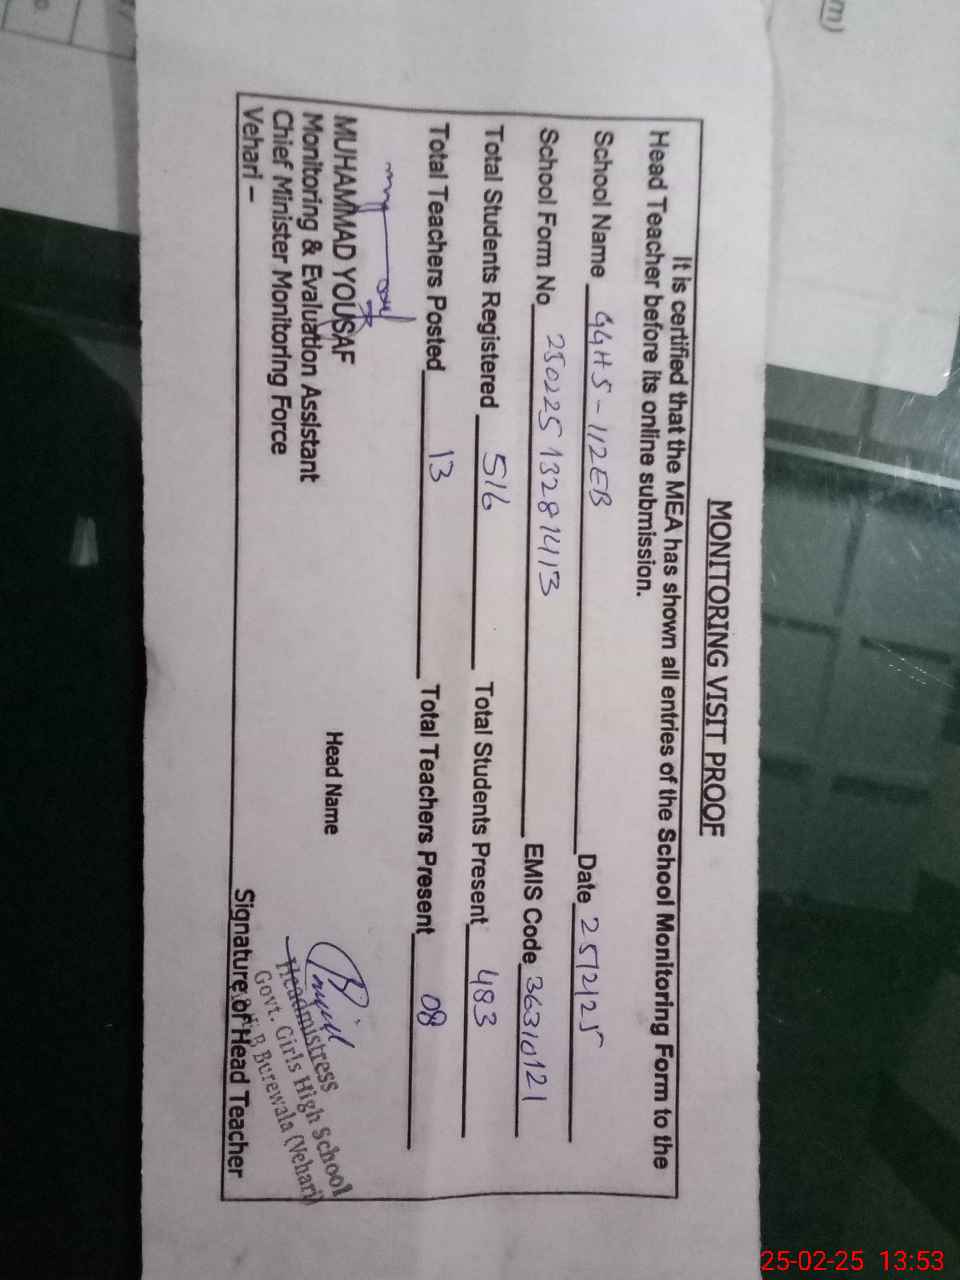 MONITORING VISIT PROOF
It is certified that the MEA has shown all entries of the School Monitoring Form to the
Head Teacher before its online submission.
School Name GGHS-112EB Date 25/2/25
School Form No 25022513281413 EMIS Code 36310121
Total Students Registered 516 Total Students Present 483
Total Teachers Posted 13 Total Teachers Present 08
MUHAMMAD YOUSAF
Monitoring & Evaluation Assistant
Chief Minister Monitoring Force
Vehari –
Head Name
Headmistress
Govt. Girls High School
B Burewala (Vehari)
Signature of Head Teacher
m)
25-02-25 13:53